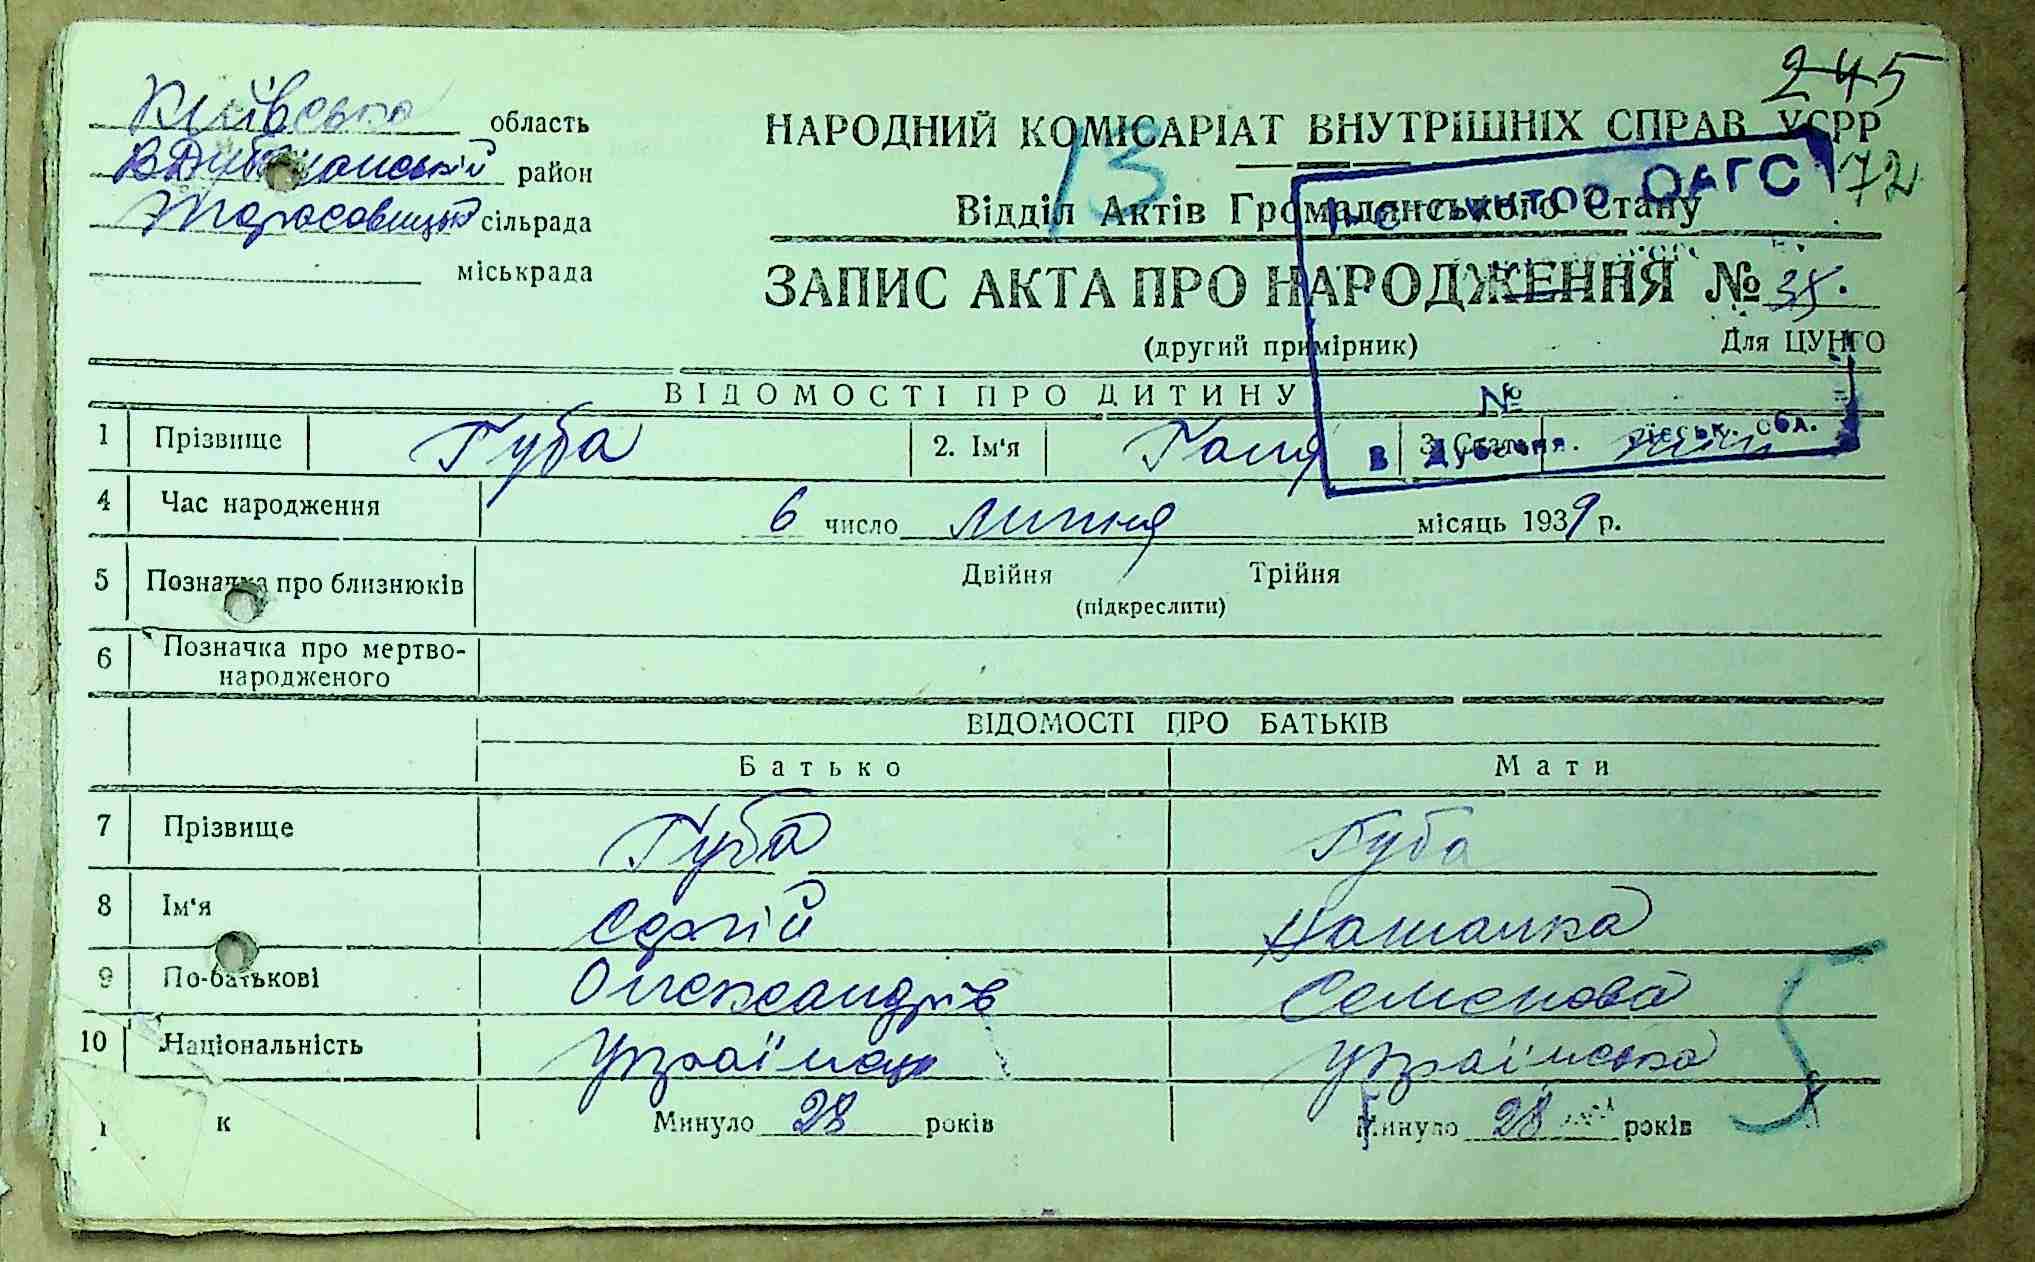 245
Київська область
НАРОДНИЙ КОМІСАРІАТ ВНУТРІШНІХ СПРАВ УСРР
13
В Дубечанський район
172
Відділ Актів Громадянського Стану
ОАГС
Тарасовицька сільрада
міськрада
ЗАПИС АКТА ПРО НАРОДЖЕННЯ № 35.
(другий примірник) Для ЦУНГО
ВІДОМОСТІ ПРО ДИТИНУ
№
1 Прізвище Губа 2. Ім'я Галя 3. Стать
В Дубечня. Київськ. обл.
4 Час народження 6 число липня місяць 1939 р.
5 Позначка про близнюків Двійня Трійня
(підкреслити)
6 Позначка про мертво-
народженого
ВІДОМОСТІ ПРО БАТЬКІВ
Батько Мати
7 Прізвище Губа Губа
8 Ім'я Сергій Наталка
9 По-батькові Олександрів Семенова
10 Національність Українець Українська
к Минуло 28 років Минуло 28 років